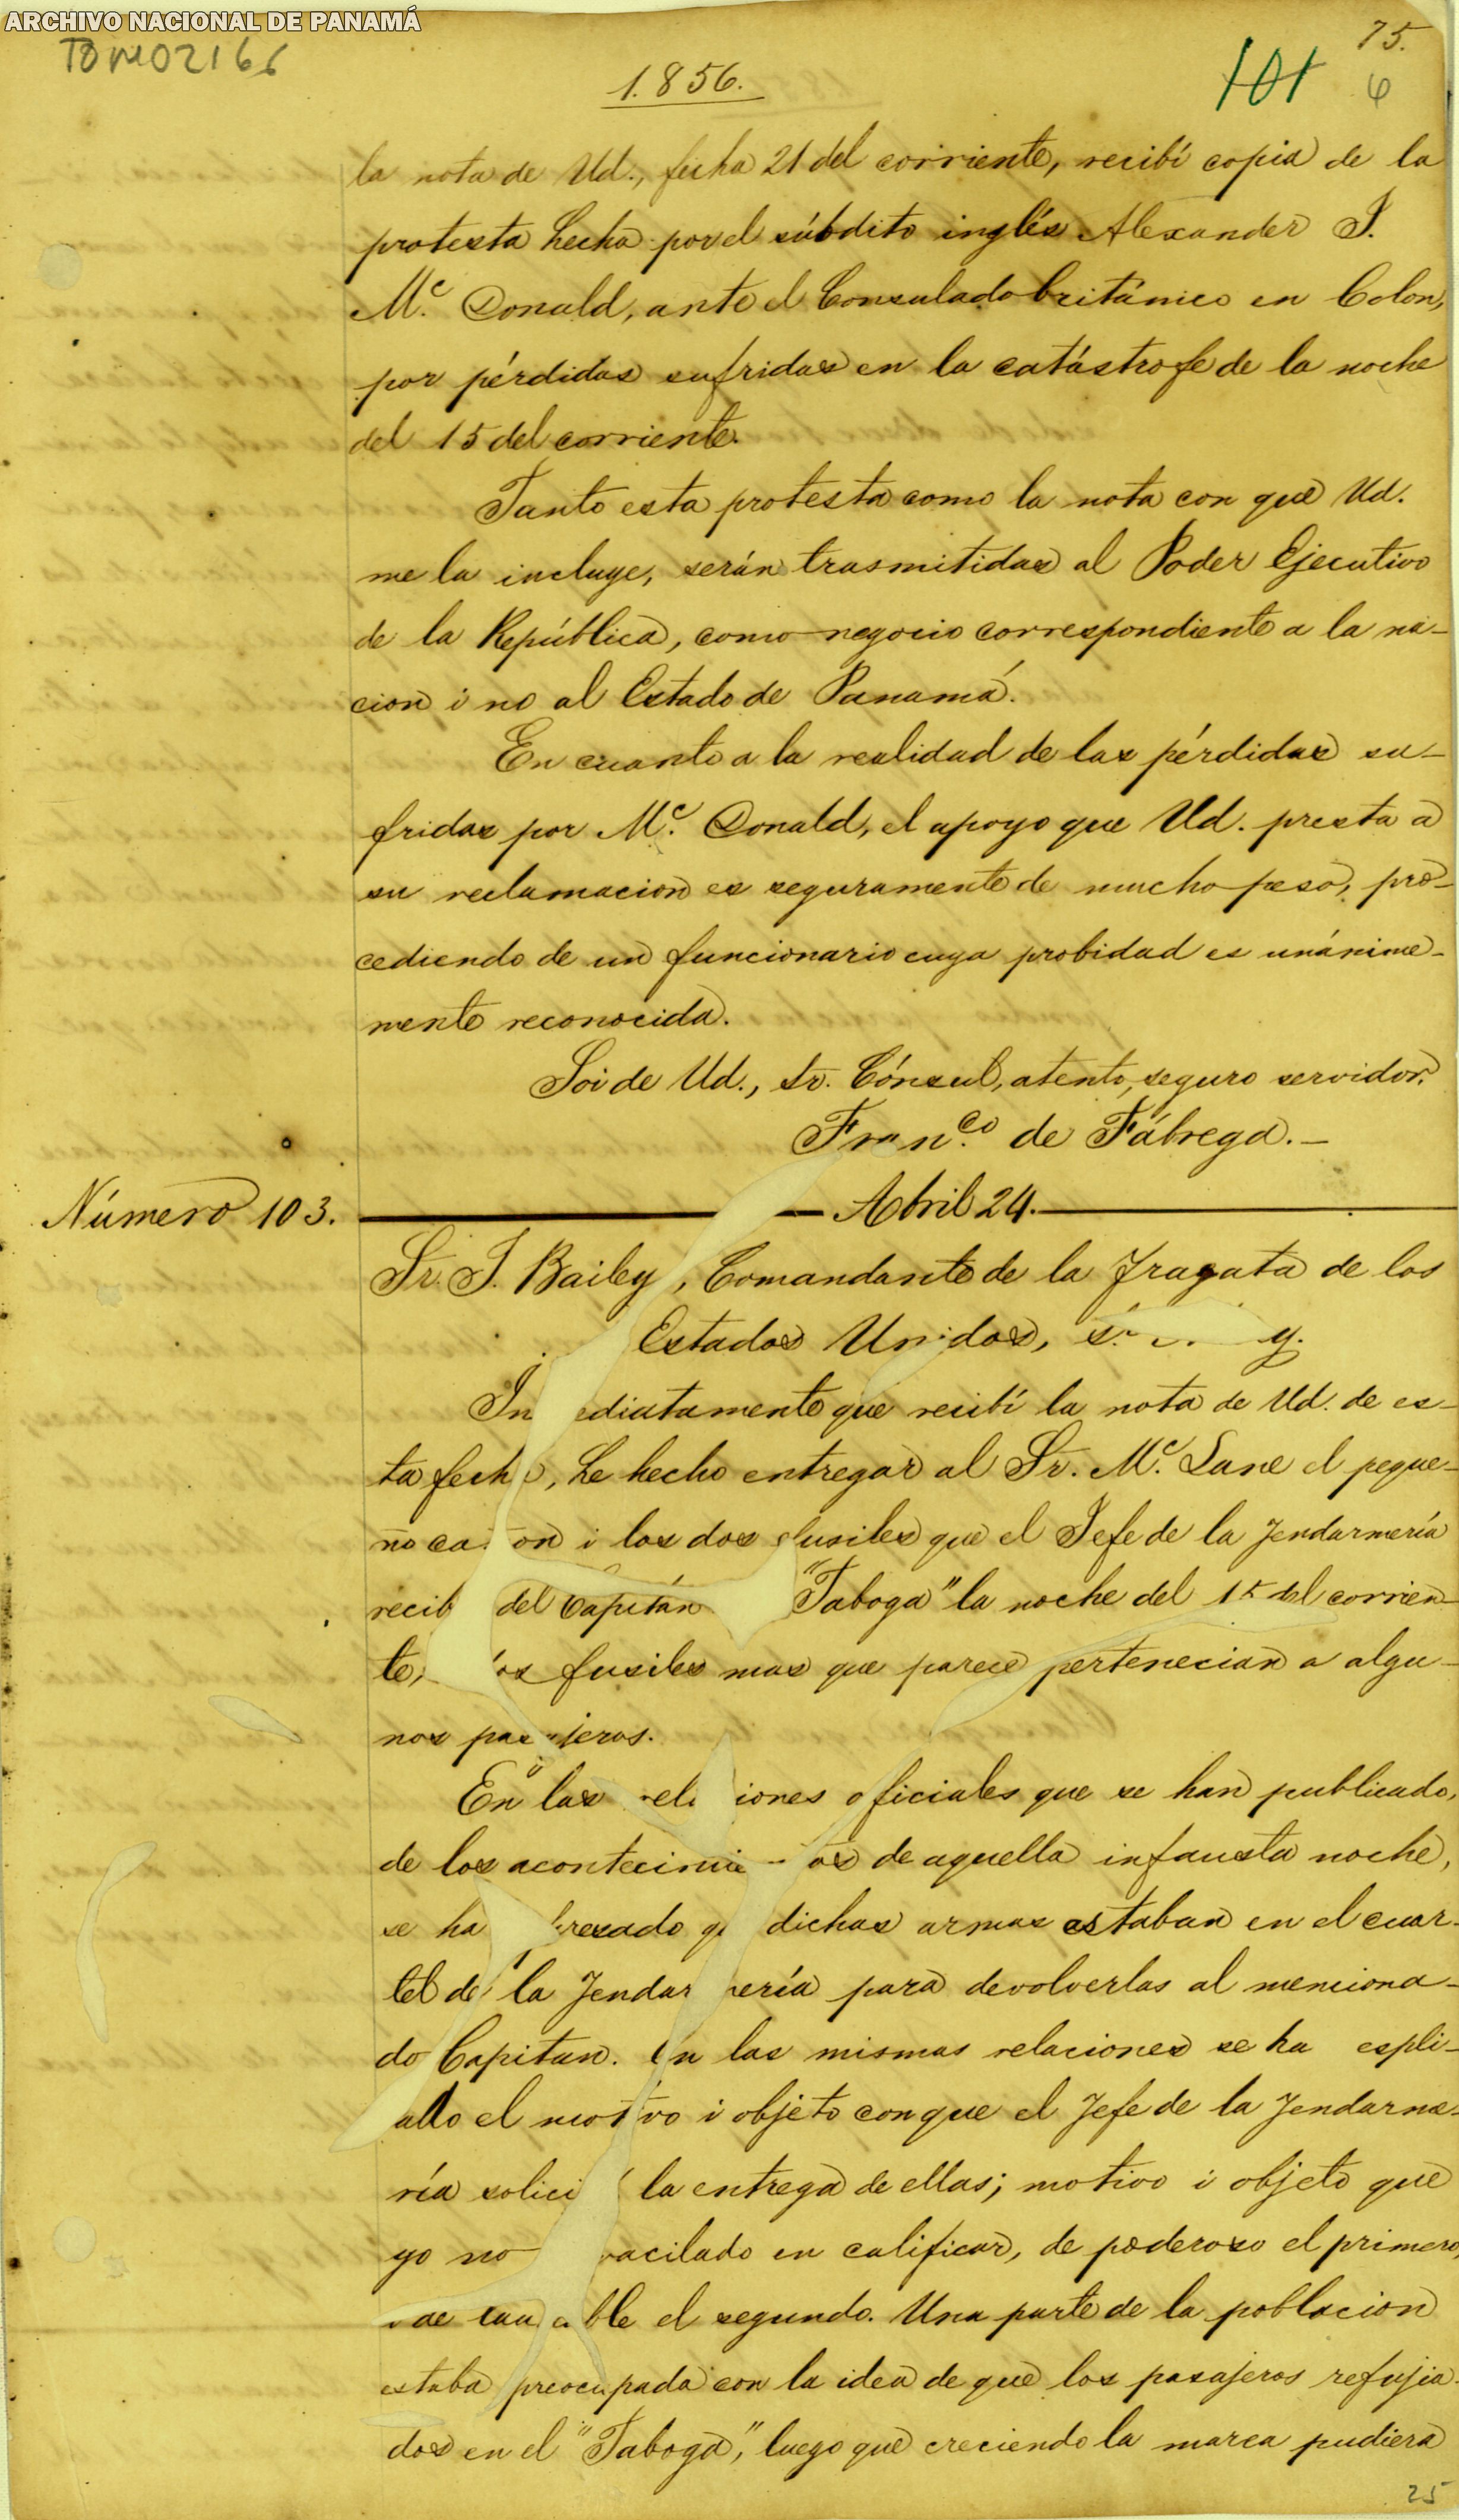 ARCHIVO NACIONAL DE PANAMÁ
TOMO2166
75.
1.856.
101 6
la nota de Ud., fecha 21 del corriente, recibí copia de la
protesta hecha por el súbdito inglés Alexander J.
Mc. Donald, ante el Consulado británico en Colon,
por pérdidas sufridas en la catástrofe de la noche
del 15 del corriente.
Tanto esta protesta como la nota con que Ud.
me la incluye, serán trasmitidas al Poder Ejecutivo
de la República, como negocio correspondiente a la na-
cion i no al Estado de Panamá.
En cuanto a la realidad de las pérdidas su-
fridas por Mc. Donald, el apoyo que Ud. presta a
su reclamacion es seguramente de mucho peso, pro-
cediendo de un funcionario cuya probidad es unánime-
mente reconocida.
Soi de Ud., Sr. Cónsul, atento, seguro servidor.
Franco. de Fábrega.—
Número 103. Abril 24.
Sr. J. Bailey, Comandante de la Fragata de los
Estados Unidos, y.
In ediatamente que recibí la nota de Ud. de es-
ta fecha, he hecho entregar al Sr. Mc. Lane el peque-
ño ca on i los dos fusiles que el Jefe de la Jendarmería
recib del Capitán "Taboga" la noche del 15 del corrien-
te, os fusiles mas que parece pertenecian a algu-
nos pasajeros.
En las rel iones oficiales que se han publicado,
de los acontecimie os de aquella infausta noche,
se ha presado q dichas armas estaban en el cuar-
tel de la Jendar ería para devolverlas al menciona-
do Capitan. En las mismas relaciones se ha espli-
ado el motivo i objeto con que el Jefe de la Jendarme-
ría solici la entrega de ellas; motivo i objeto que
yo no vacilado en calificar, de poderoso el primero,
de lau able el segundo. Una parte de la poblacion
estaba preocupada con la idea de que los pasajeros refujia-
dos en el "Taboga", luego que creciendo la marea pudiera
25